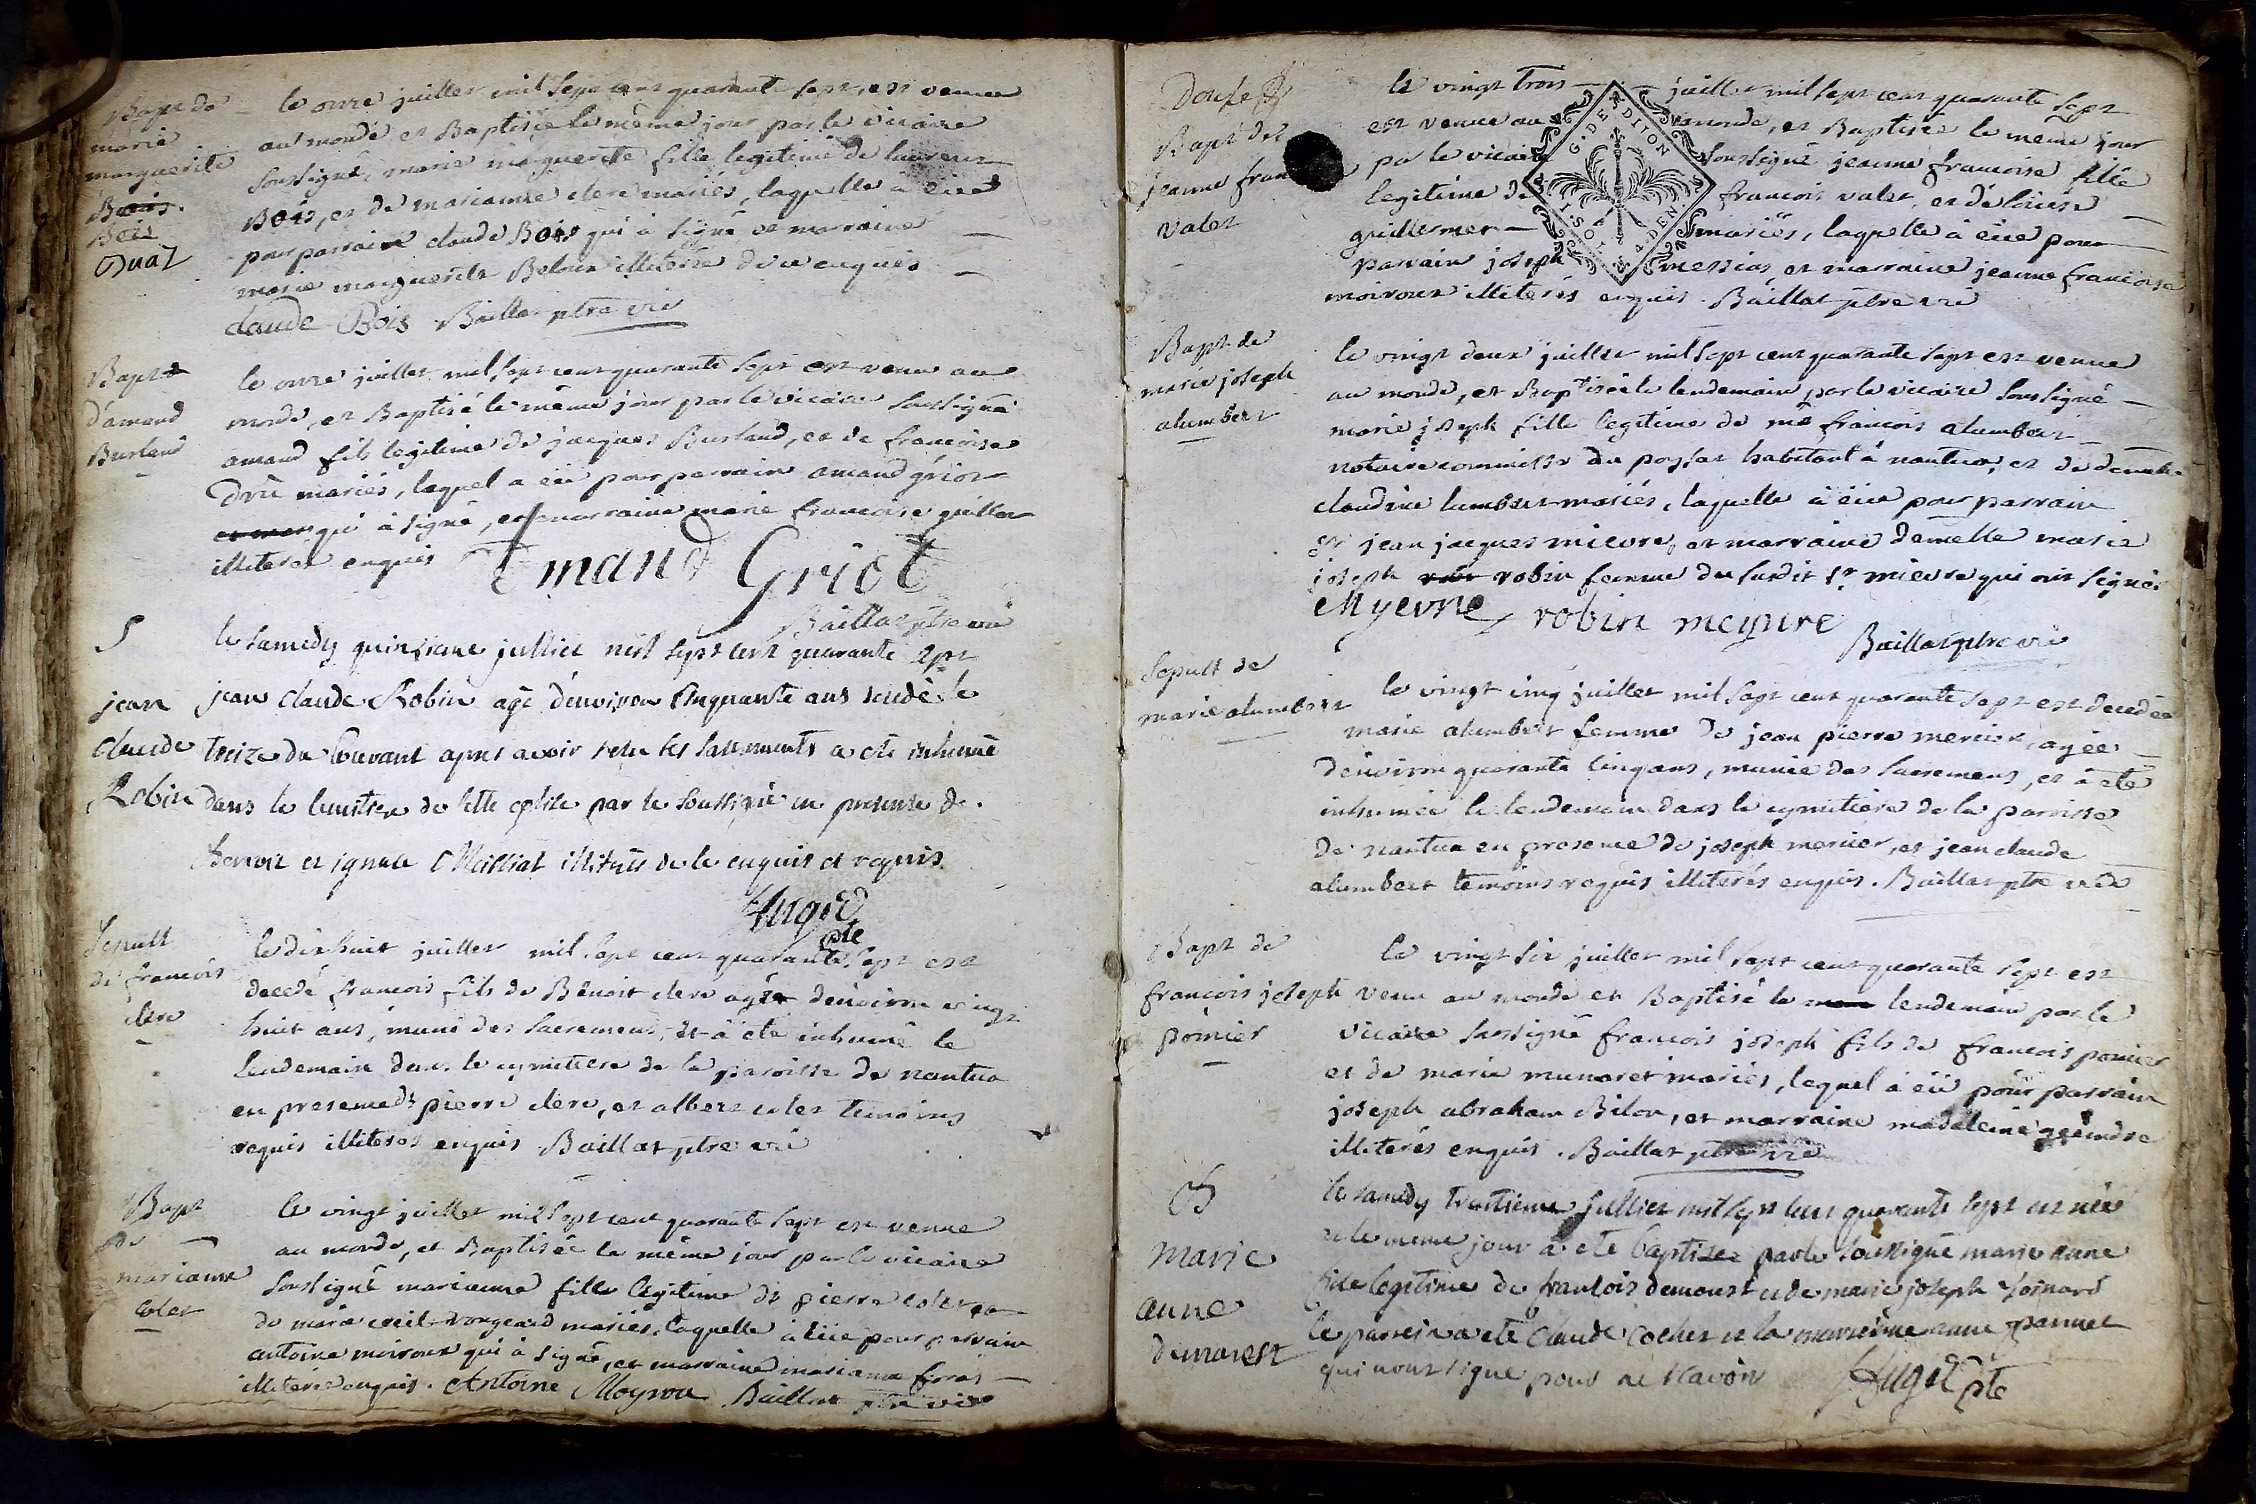 Bapt de
marie
marguerite
Bois
Bois
Quat
le onze juillet mil sept cent quarante sept, est venue
au monde et Baptisée le même jour par le vicaire
soussigné, marie marguerite fille legitime de laurent
Bois, et de marianne clerc mariés, laquelle à eüe
pour parrain claude Bois qui à signé et marraine
marie marguerite illiterée enquis
claude Bois Baillat ptre vic
Bapt
d'amand
Burland
le onze juillet mil sept cent quarante sept est venu au
monde, et Baptisé le même jour par le vicaire soussigné
amand fils legitime de jacques Burland, et de francoise
mariés, lequel a eü pour parrain amand griot
qui à signé, et marraine marie francoise
illiterée enquis Amand Griot
Baillat ptre vic
S
jean
claude
Robin
le samedy quinzieme julliet mil sept cent quarante sept
jean claude Robin agé d'environ cinquante ans decedé le
treize du courant apres avoir recu les sacrements a eté inhumé
dans le de cette eglise par le soussigné en presence de
benoit et ignace Maissiat illiterés de ce enquis et requis
Augié
pte
Sepult
de francois
clerc
le dix huit juillet mil sept cent quarante sept est
decedé francois fils de Benoit clerc agé d'environ vingt
huit ans, muni des sacremens, et à eté inhumé le
lendemain dans le cymitiere de la paroisse de nantua
en presence de pierre clerc, et albert colet temoins
requis illiterés enquis. Baillat ptre vic
Bapt
de
marianne
colet
le vingt juillet mil sept cent quarante sept est venue
au monde, et Baptisée le même jour par le vicaire
soussigné marianne fille legitime de pierre colet et
de marie vongeard mariés, laquelle à eüe pour parrain
antoine moiroux qui à signé, et marraine marianne
illiterée enquis. Antoine Moyrou Baillat ptre vic
Bapt de
jeanne
Valet
le vingt trois juillet mil sept cent quarante sept
est venue au monde, et Baptisée le meme jour
par le vicaire soussigné jeanne francoise fille
legitime de francois valet, et de
guillermet mariés, laquelle à eüe pour
parrain joseph messias et marraine jeanne francoise
moiroux illiterés enquis. Baillat ptre vic
G. DE DIJON
1 SOL 4 DEN.
Bapt de
marie joseph
alumbert
le vingt deux juillet mil sept cent quarante sept est venue
au monde, et Baptisée le lendemain, par le vicaire soussigné
marie joseph fille legitime de me francois alumbert
notaire commissre du poysat habitant à nantua, et de demelle
claudine lumbert mariés, laquelle à eüe pour parrain
sr jean jacques mievre, et marraine demelle marie
joseph robin femme du susdit sr mievre qui ont signés
Myevre robin meyure
Baillat ptre vic
Sepult de
marie alumbert
le vingt cinq juillet mil sept cent quarante sept est decedée
marie alumbert femme de jean pierre mercier, agée
d'environ quarante cinq ans, munie des sacremens, et à eté
inhumée le lendemain dans le cymitiere de la parroisse
de nantua en presence de joseph mercier, et jean claude
alumbert temoins requis illiterés enquis. Baillat ptre vic
Bapt de
francois joseph
pornier
le vingt six juillet mil sept cent quarante sept est
venu au monde et Baptisé le lendemain par le
vicaire soussigné francois joseph fils de francois
et de marie munaret mariés, lequel à eü pour parrain
joseph abraham Bilon, et marraine madeleine
illiterés enquis. Baillat ptre vic
B
marie
anne
demarest
le samedy trentieme julliet mil sept cent quarante sept est née
et le meme jour a eté baptisée par le soussigné marie anne
fille legitime de francois et de marie joseph
le parrein a eté Claude Cochet et la marreine anne pannet
qui n'ont signé pour ne scavoir Augié pte